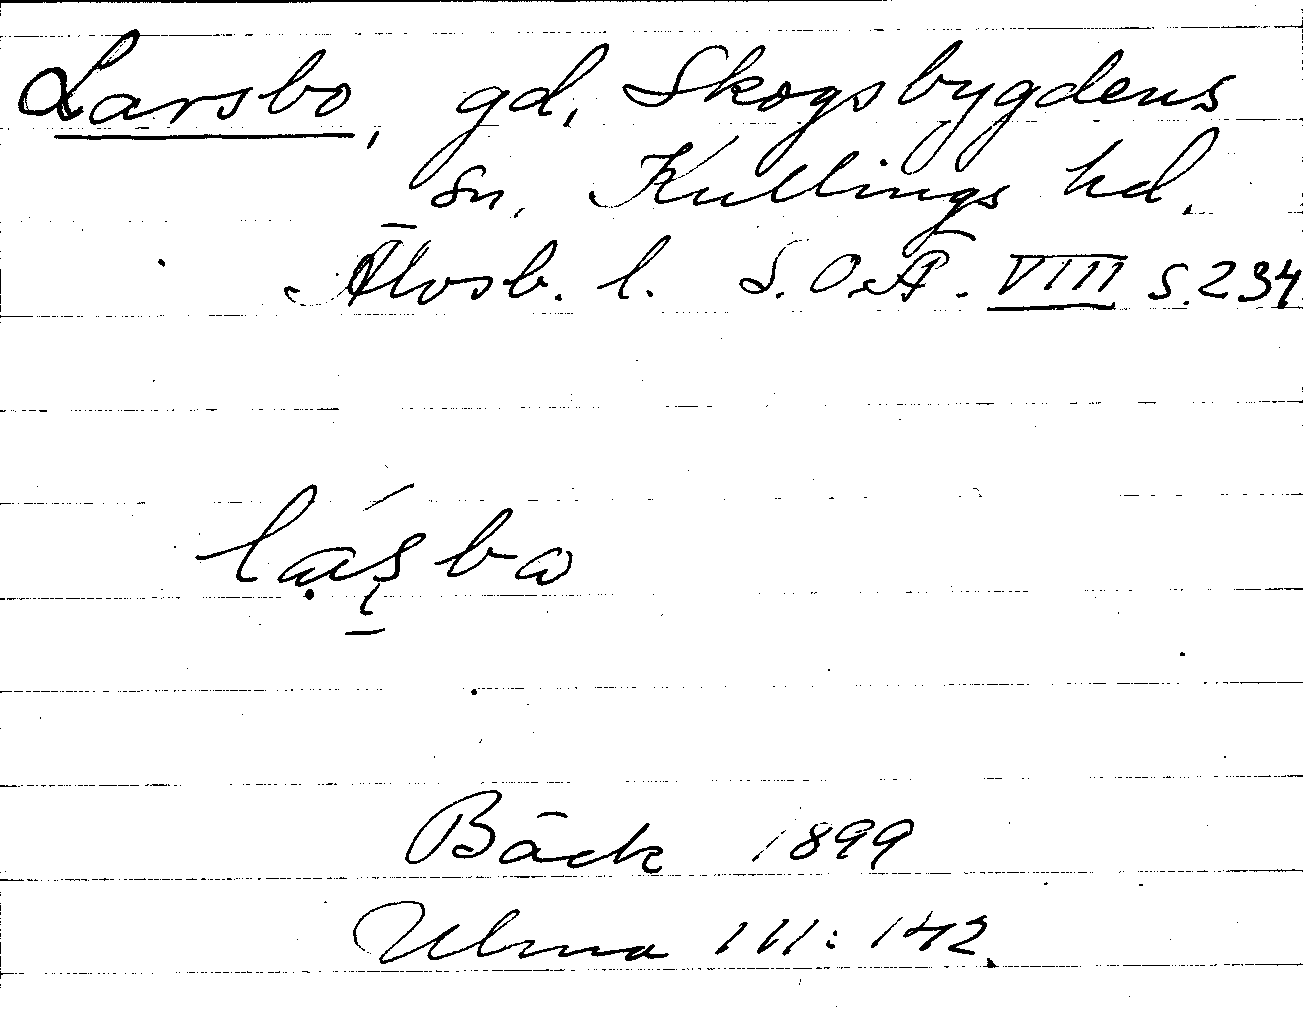 Larsbo, gd, Skogsbygdens
sn, Kullings hd.
Älvsb. l. S.O.Ä. VIII s. 234
lasbo
Bäck 1899
Ulma 111:142.